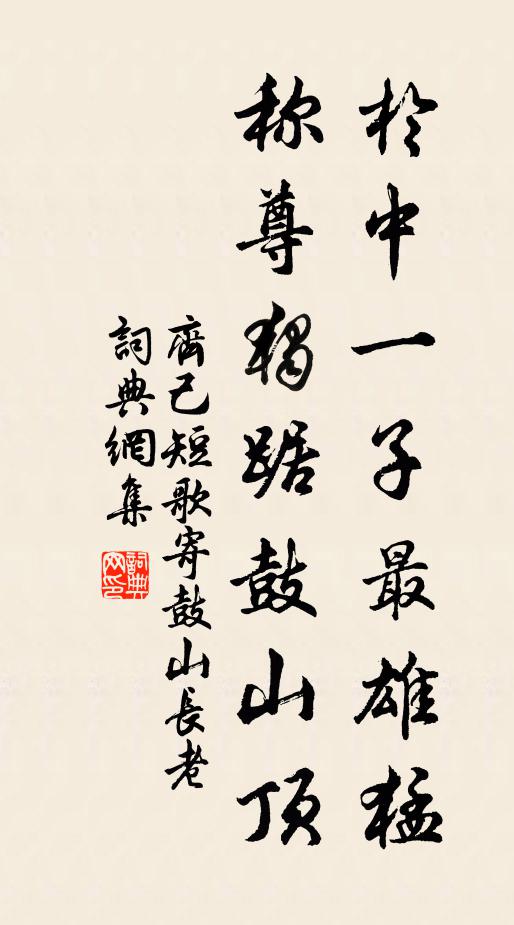 於中一子最雄猛
称尊獨踞鼓山頂
齊己短歌寄鼓山長老
詞典網集
詞典网印